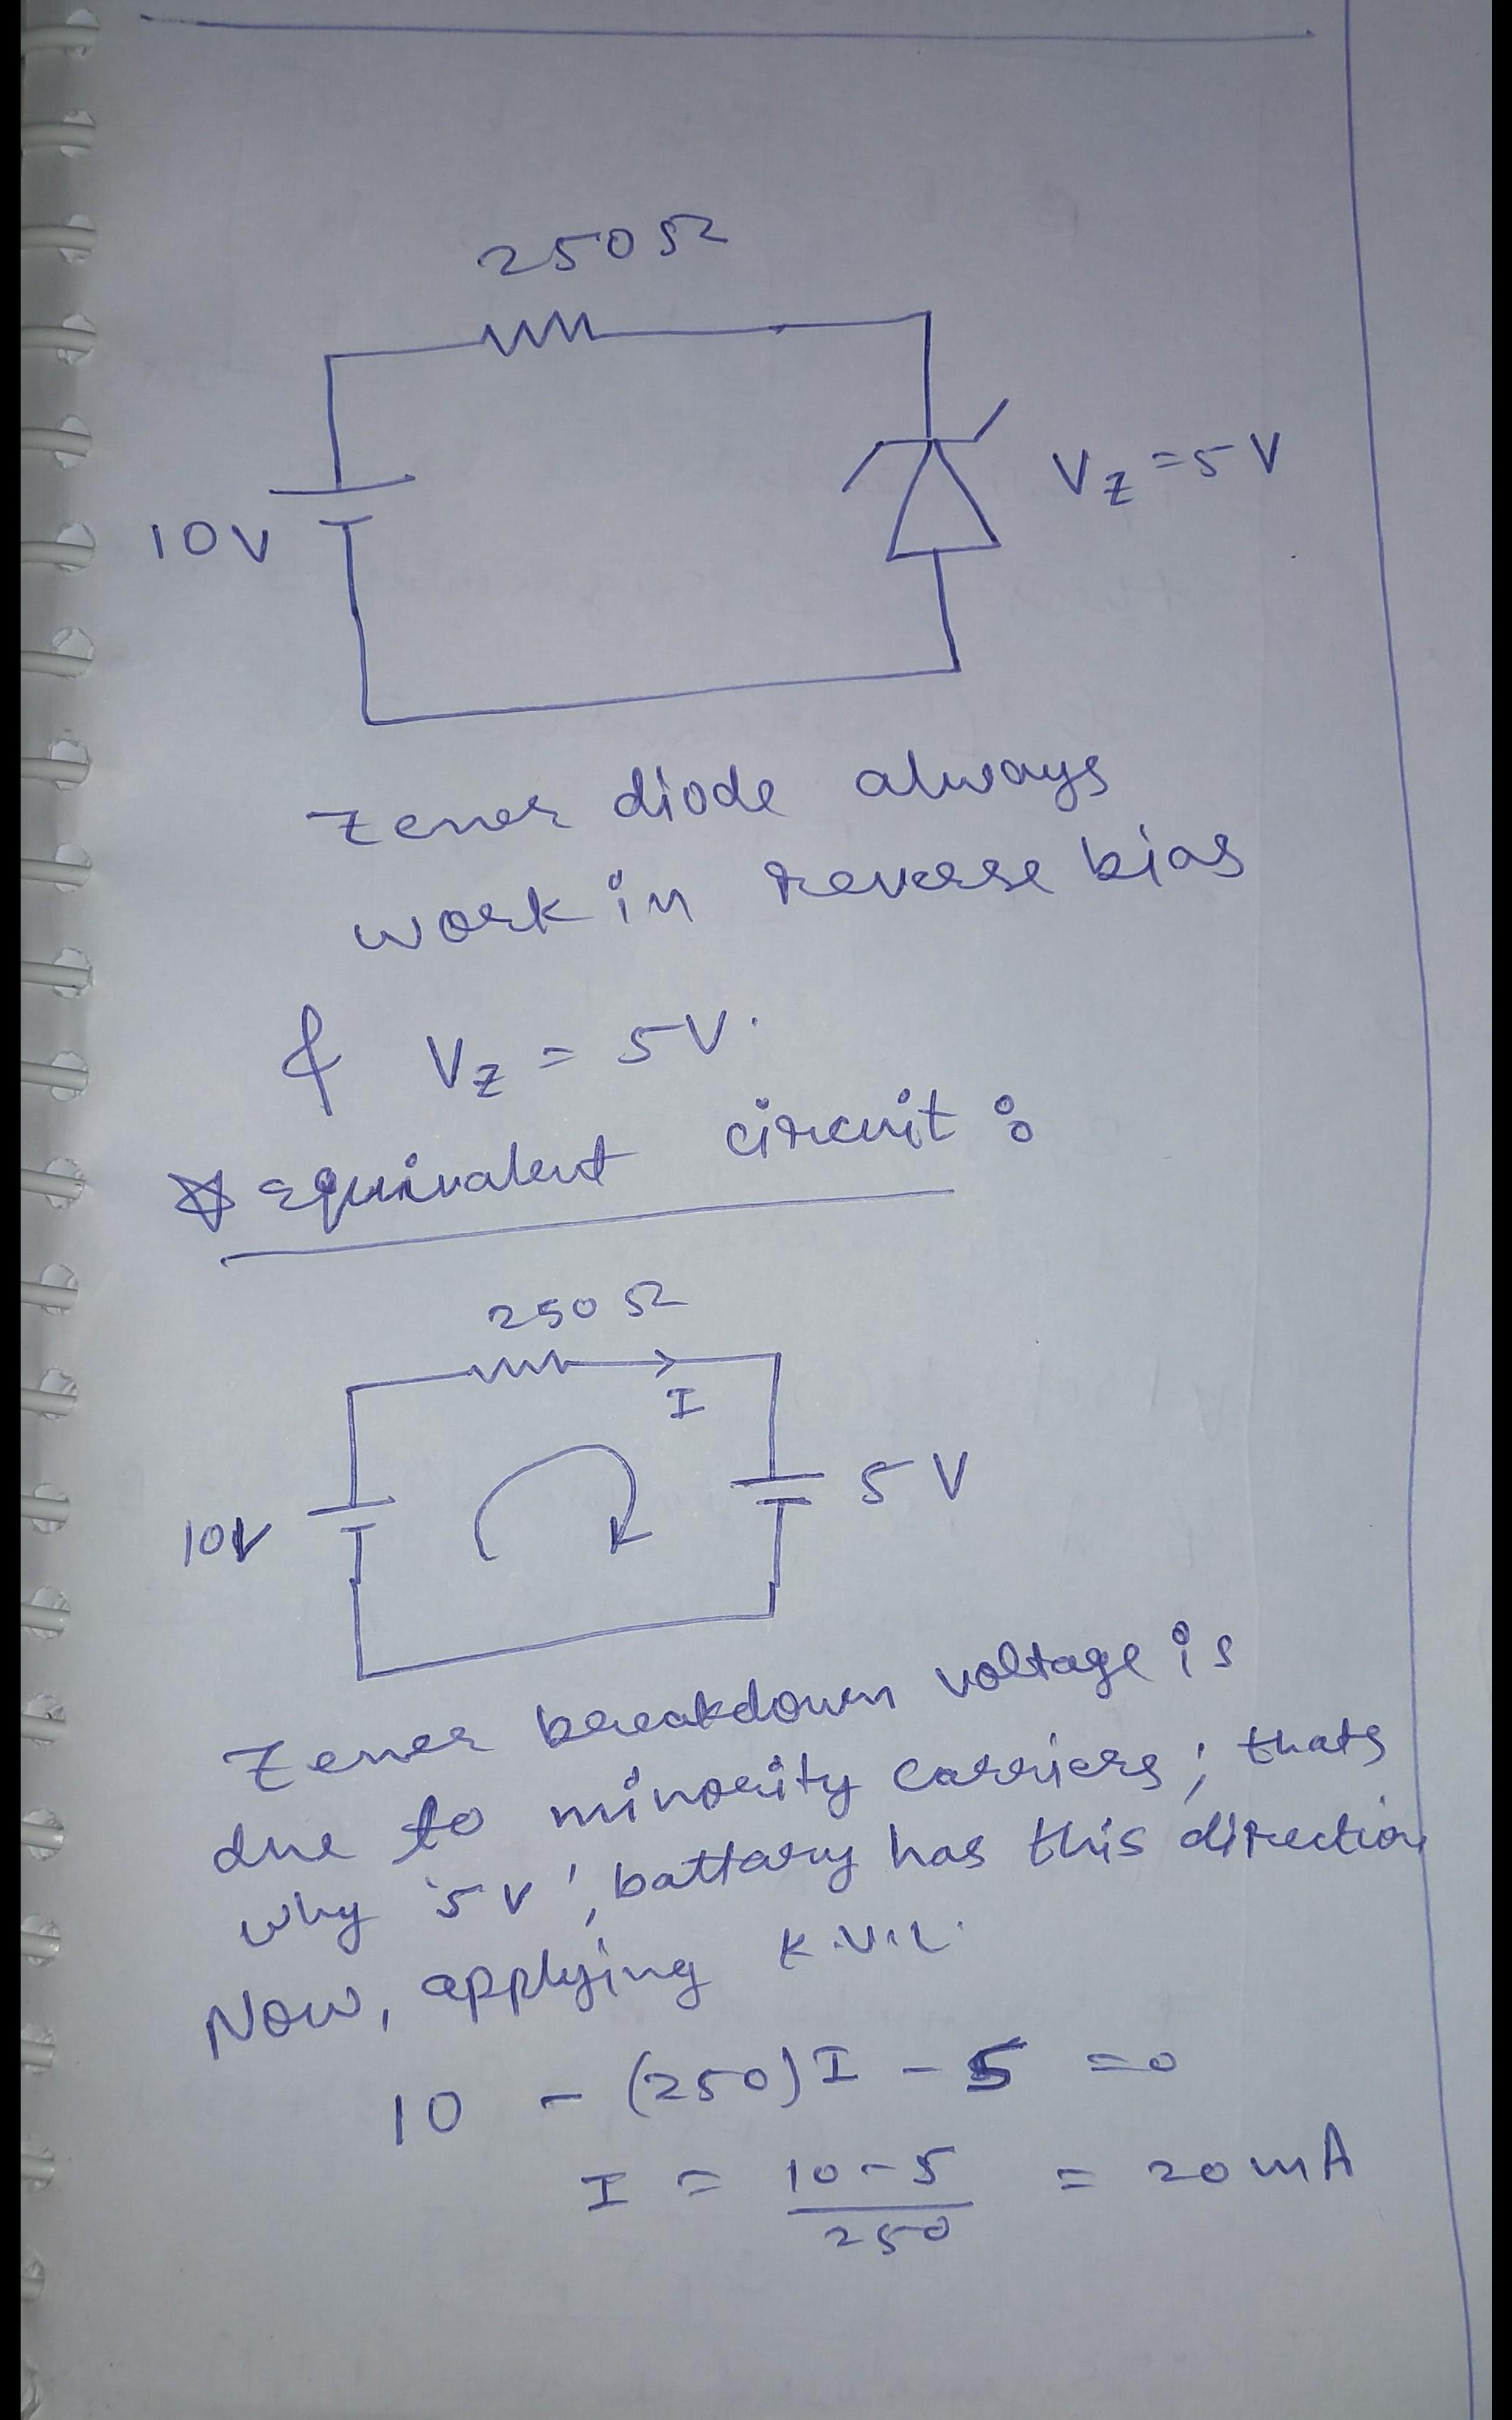 250Ω
10V
V_Z = 5 V
Zener diode always
work in reverse bias
& V_Z = 5V.
Equivalent circuit :
250 Ω
I
10V
5 V
Zener breakdown voltage is
due to minority carriers ; thats
why '5 V', battary has this direction
Now, applying K.V.L.
10 - (250) I - 5 = 0
I = 10 - 5 / 250 = 20 mA